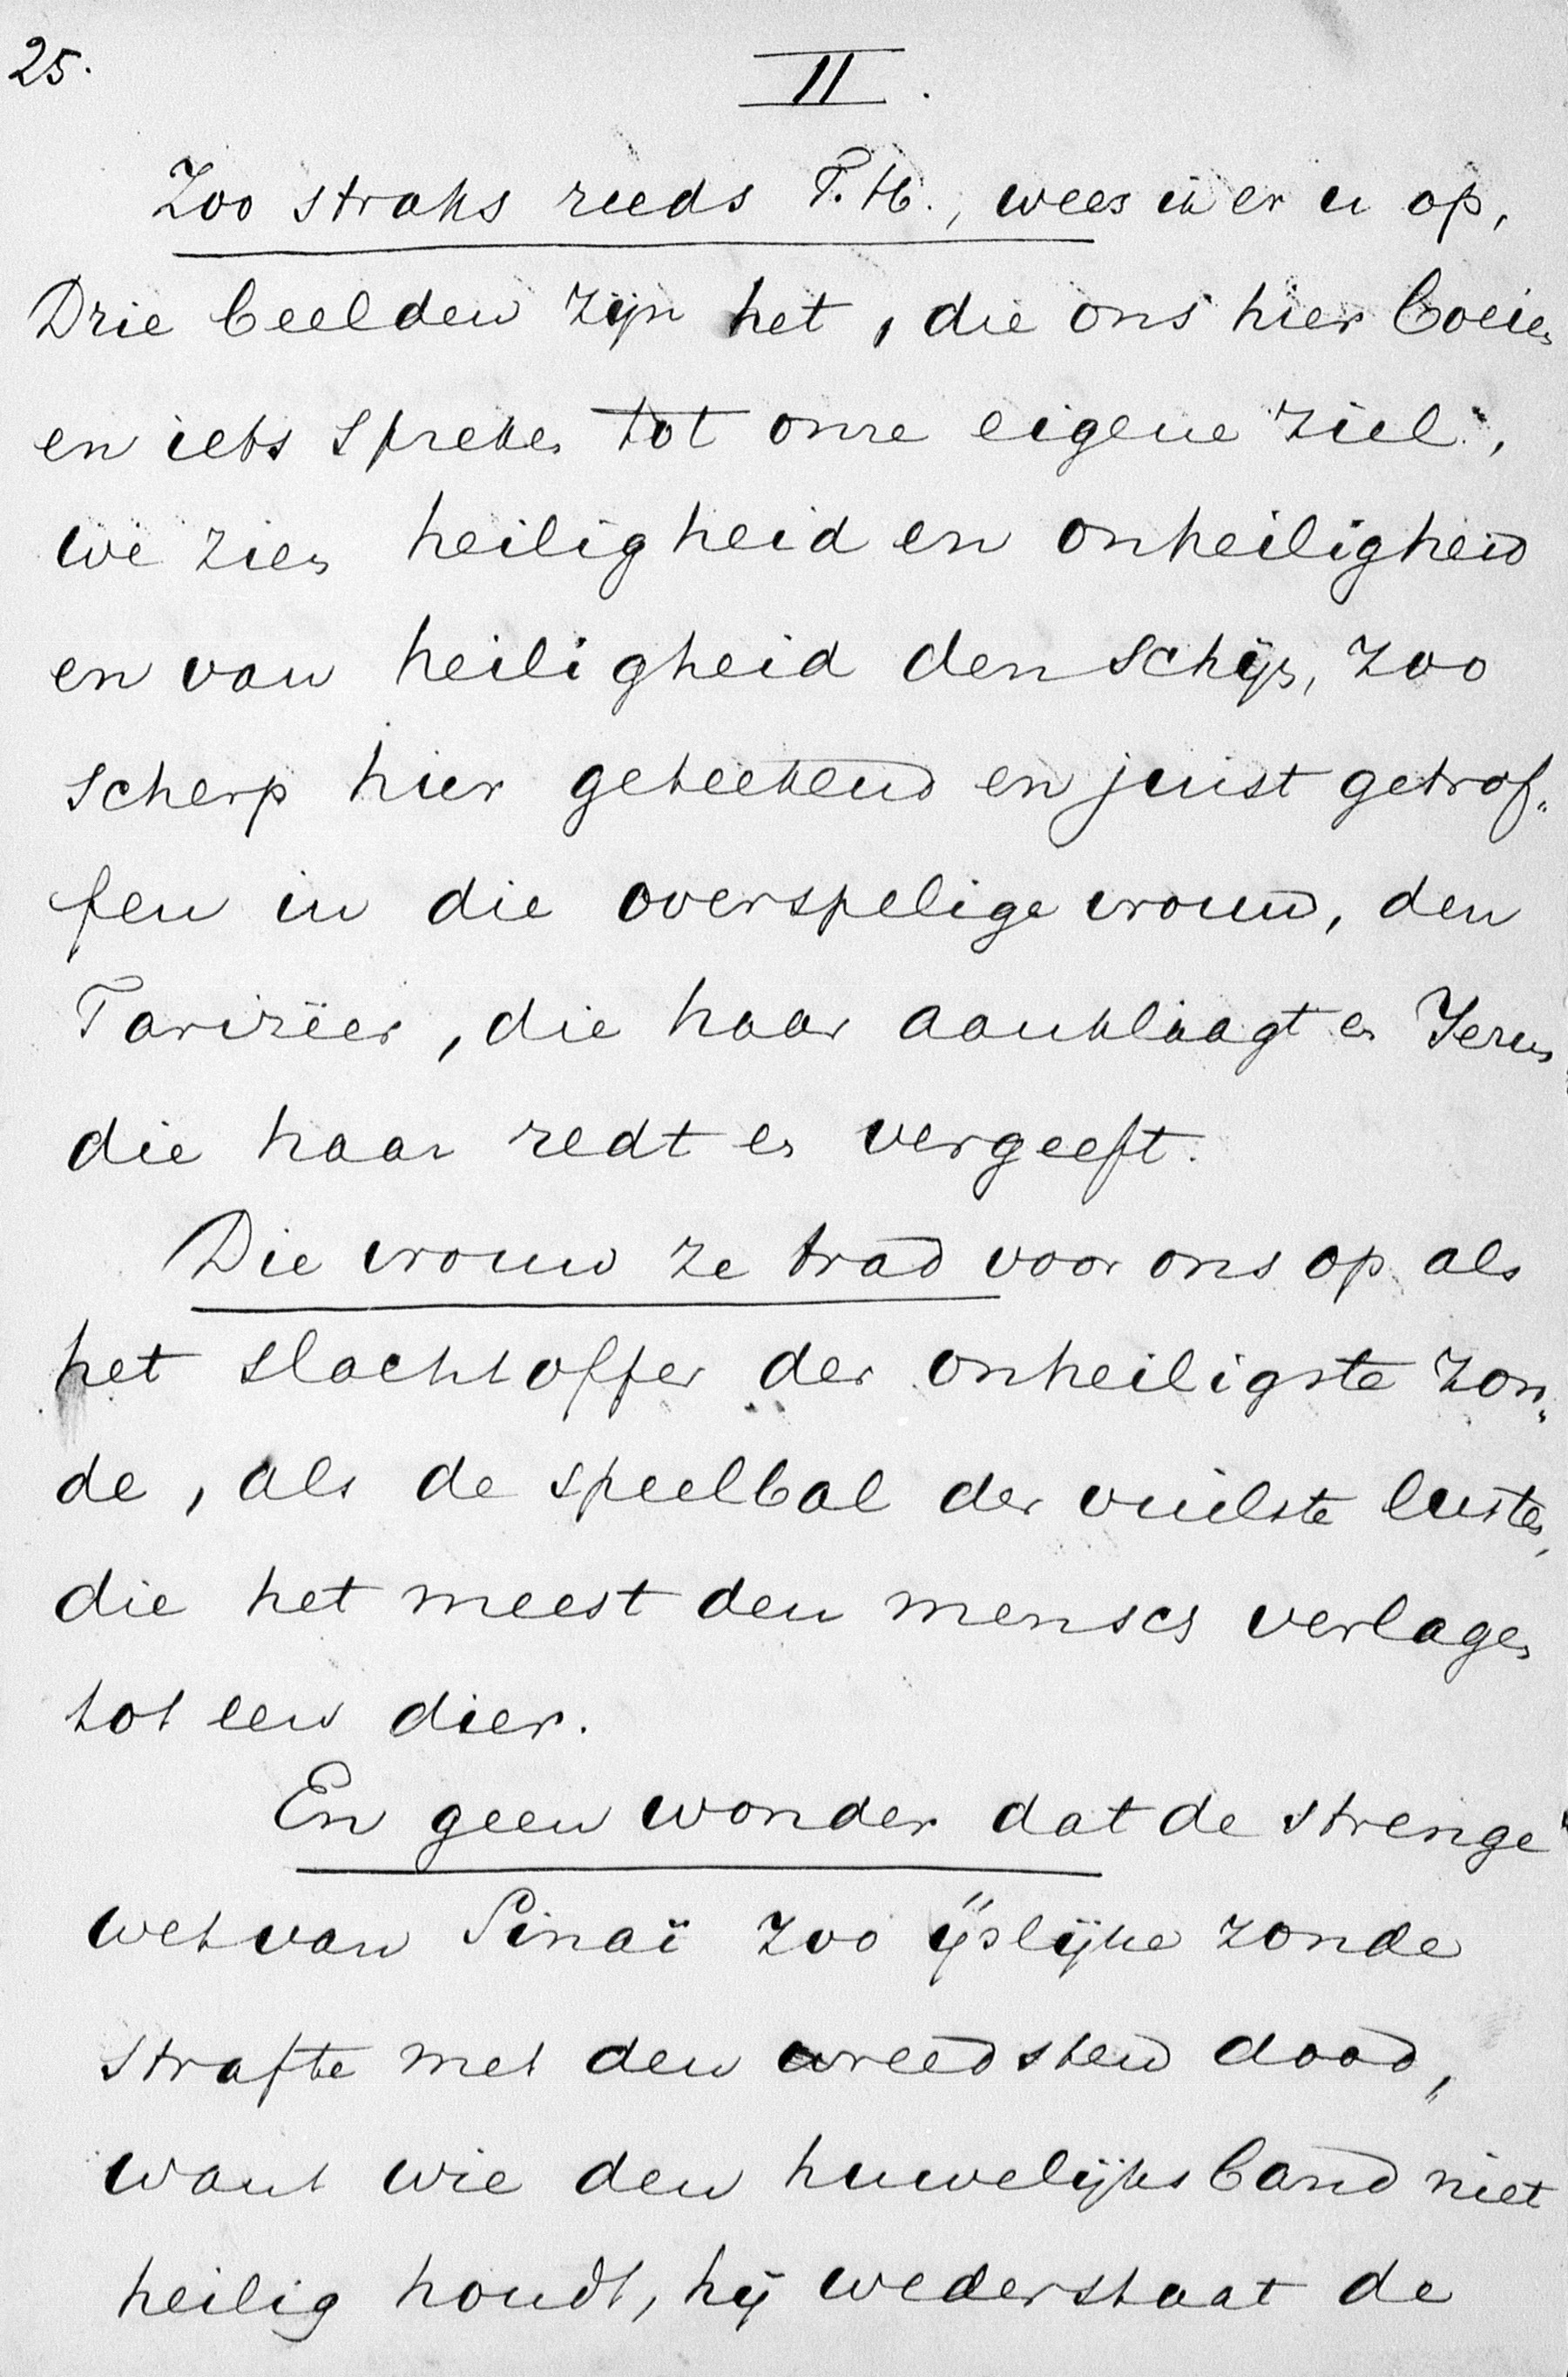 25.
II.
Zoo straks reeds T. H., wees ik er u op,
Drie beelden zijn het, die ons hier boeien
en iets spreken tot onze eigene ziel,
we zien heiligheid en onheiligheid
en van heiligheid den schijn, zoo
scherp hier geteekend en juist getrof„
fen in die overspelige vrouw, den
Farizëer, die haar aanklaagt en Jezus
die haar redt en vergeeft.
Die vrouw ze trad voor ons op als
het slachtoffer der onheiligste zon„
de, als de speelbal der vuilste lusten,
die het meest den mensch verlagen
tot een dier.
En geen wonder dat de strenge
wet van Sinaï zoo ijslijke zonde
strafte met den wreedsten dood,
want wie den huwelijksband niet
heilig houdt, hij wederstaat de